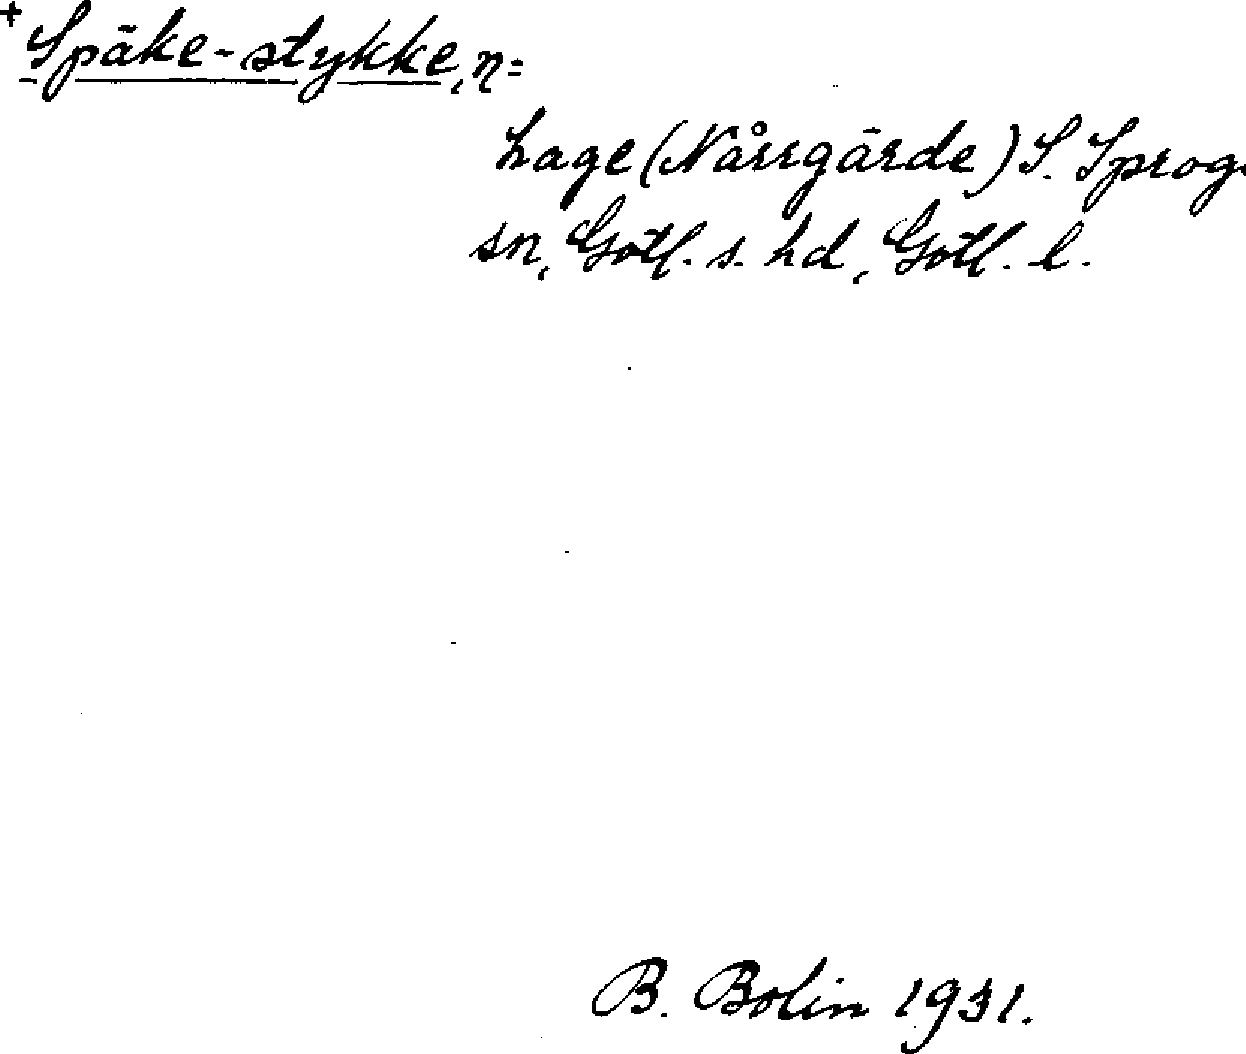 + Späke-stykke, n=
hage (Nårrgärde) S. Sproge
sn, Gotl. s. hd, Gotl. l.
B. Bolin 1931.